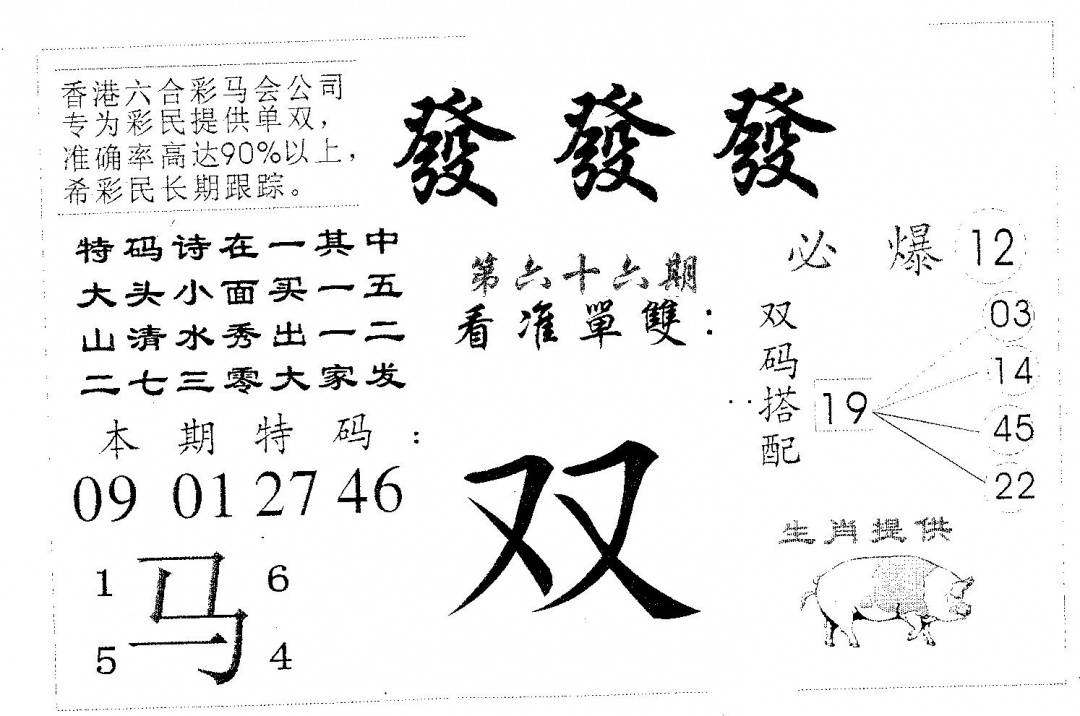 香港六合彩马会公司
专为彩民提供单双，
准确率高达90%以上，
希彩民长期跟踪。
發 發 發
特码诗在一其中
大头小面买一五
山清水秀出一二
二七三零大家发
第六十六期
看准單雙：
必 爆 12
双码搭配
19
03
14
45
22
本期特码：
09 01 27 46
双
生肖提供
马
1 6
5 4